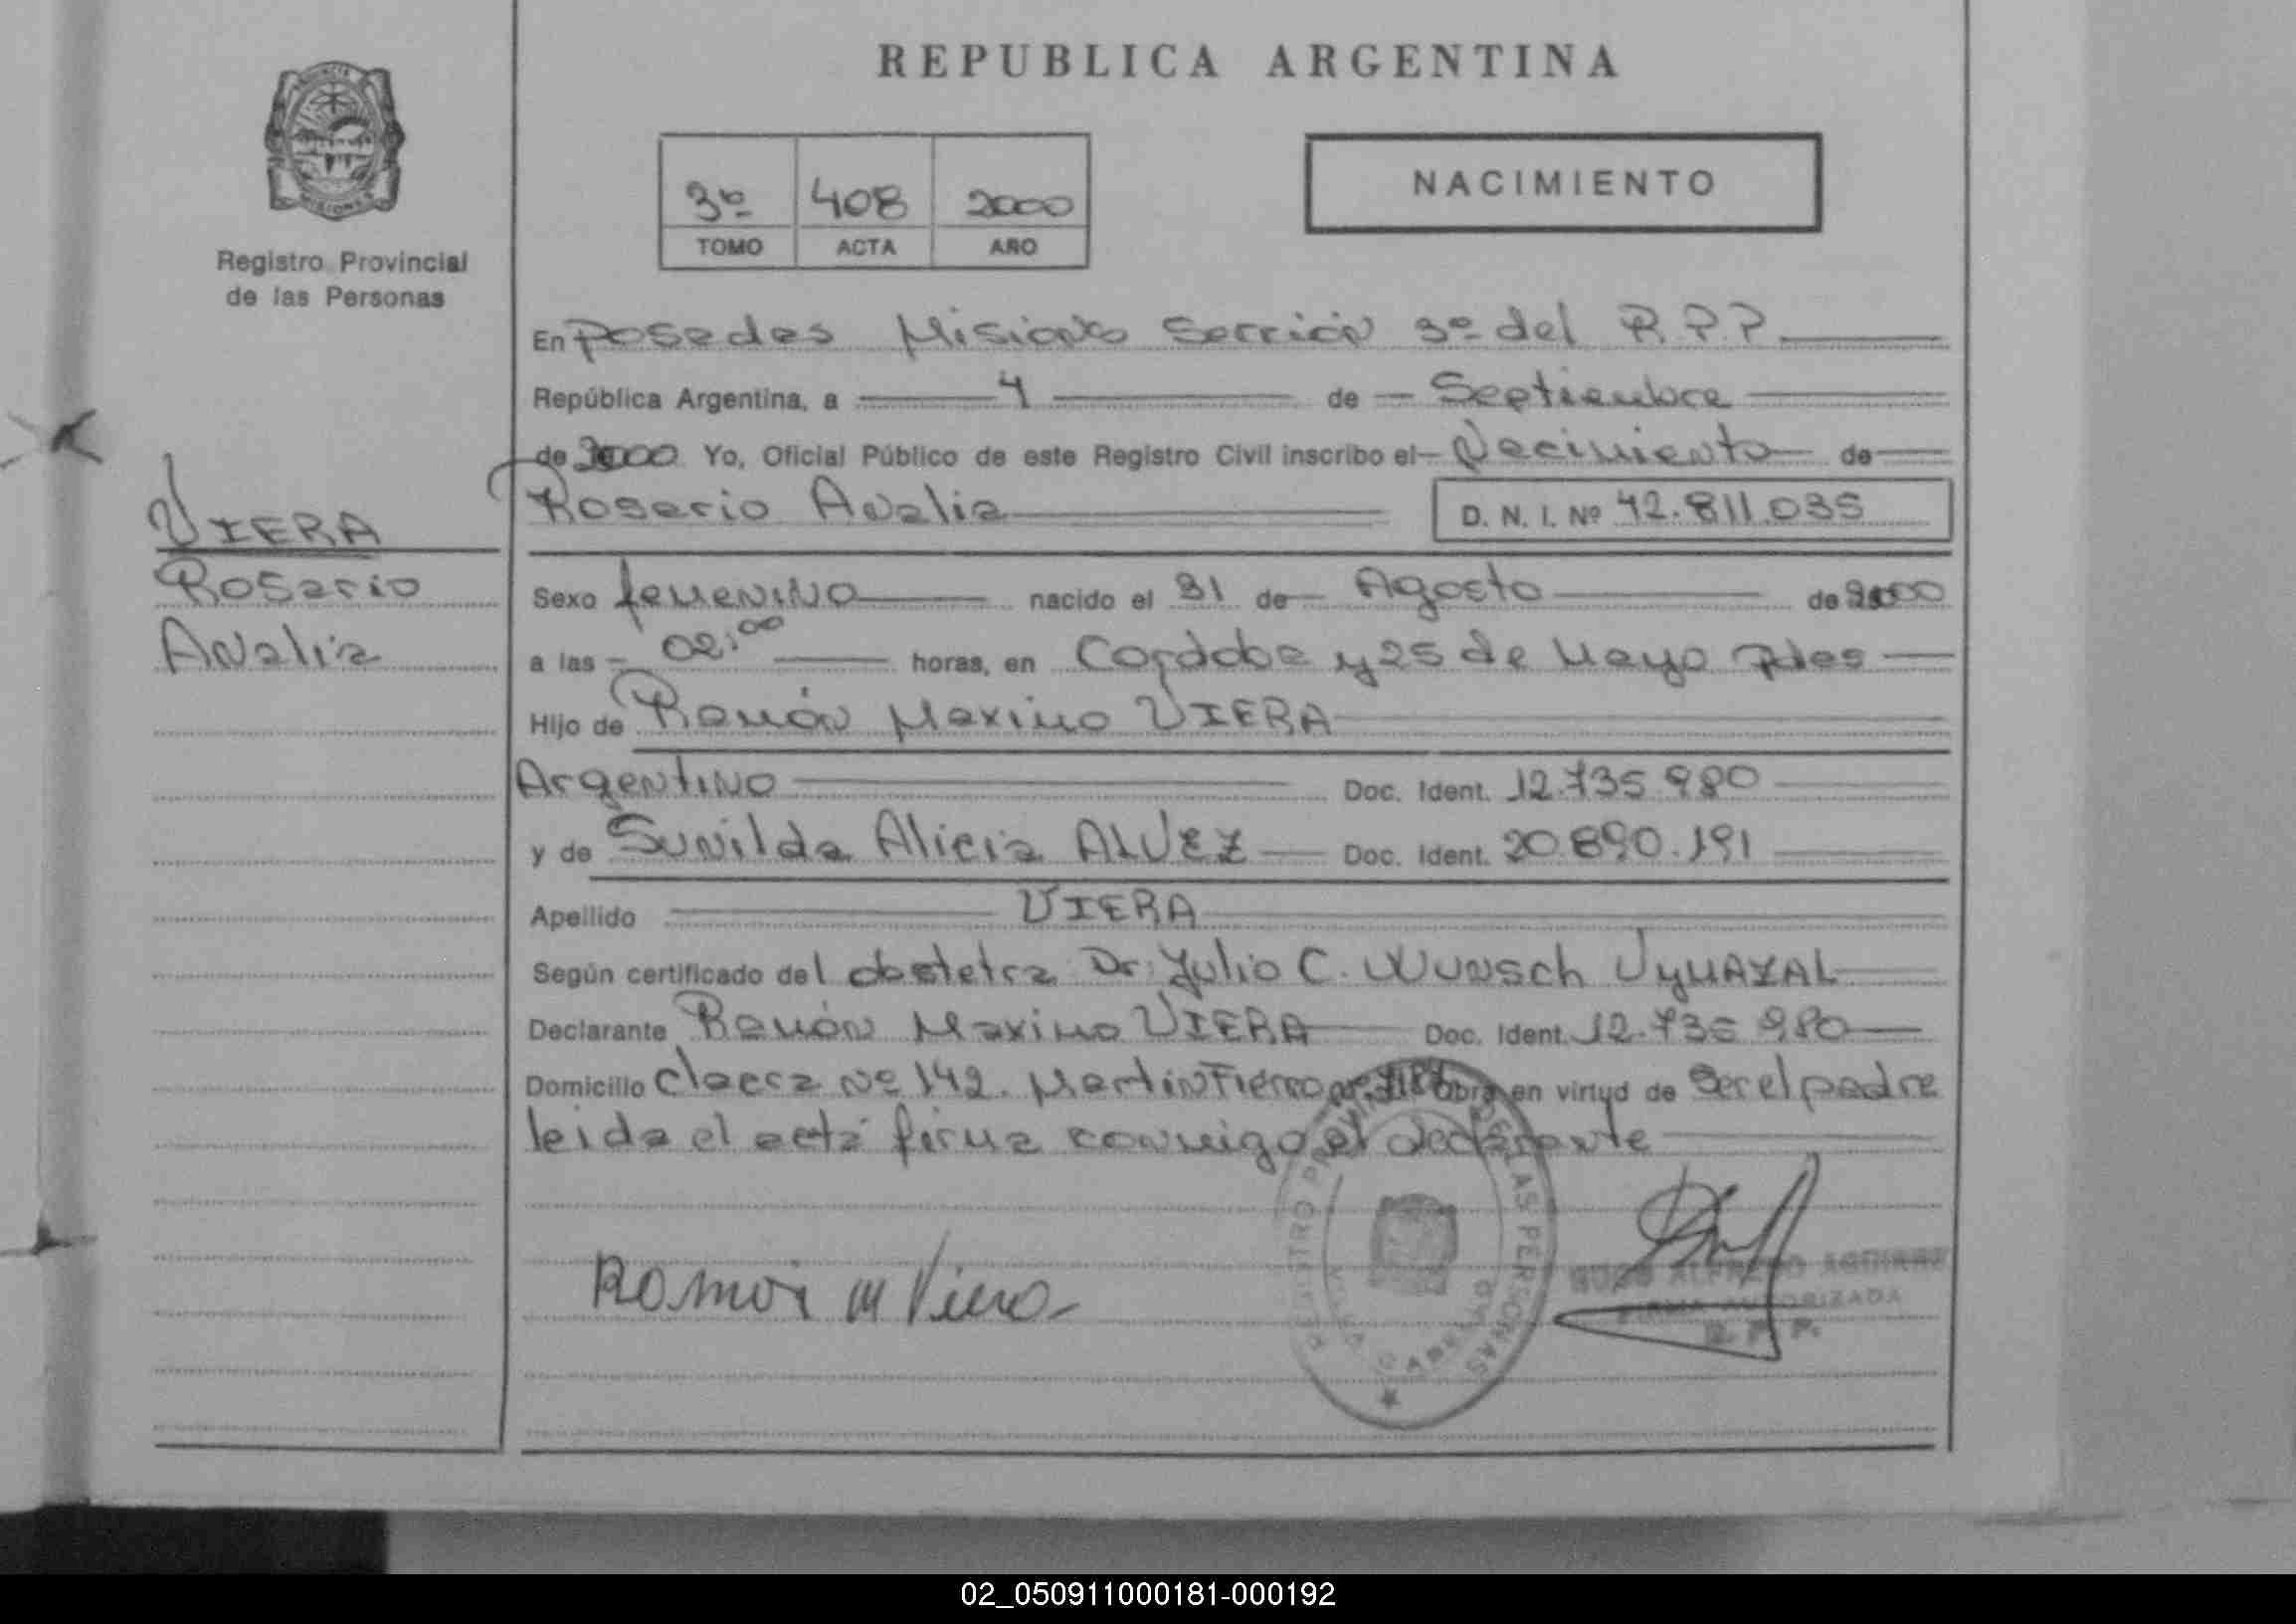 REPUBLICA ARGENTINA
3º 408 2000
TOMO ACTA AÑO
NACIMIENTO
Registro Provincial
de las Personas
En Posadas Misiones Sección 3º del R.P.P.
República Argentina, a 4 de Septiembre
de 2000 Yo, Oficial Público de este Registro Civil inscribo el Nacimiento de
Rosario Analia D. N. I. Nº 42.811.035
VIERA
Rosario
Analia
Sexo femenino nacido el 31 de Agosto de 2000
a las 02:00 horas, en Cordoba y 25 de Mayo Pdas
Hijo de Ramón Maximo VIERA
Argentino Doc. Ident. 12.735.980
y de Sunilda Alicia ALVEZ Doc. Ident. 20.890.191
Apellido VIERA
Según certificado del obstetra Dr. Julio C. Wunsch
Declarante Ramón Maximo VIERA Doc. Ident. 12.735.980
Domicilio Nº 142. Martin Fierro Obra en virtud de ser el padre
leida el acta firma conmigo el declarante
Ramon M Viera
REGISTRO PROVINCIAL DE LAS PERSONAS
ALFREDO AGUIRRE
FIRMA AUTORIZADA
R. P. P.
02_050911000181-000192